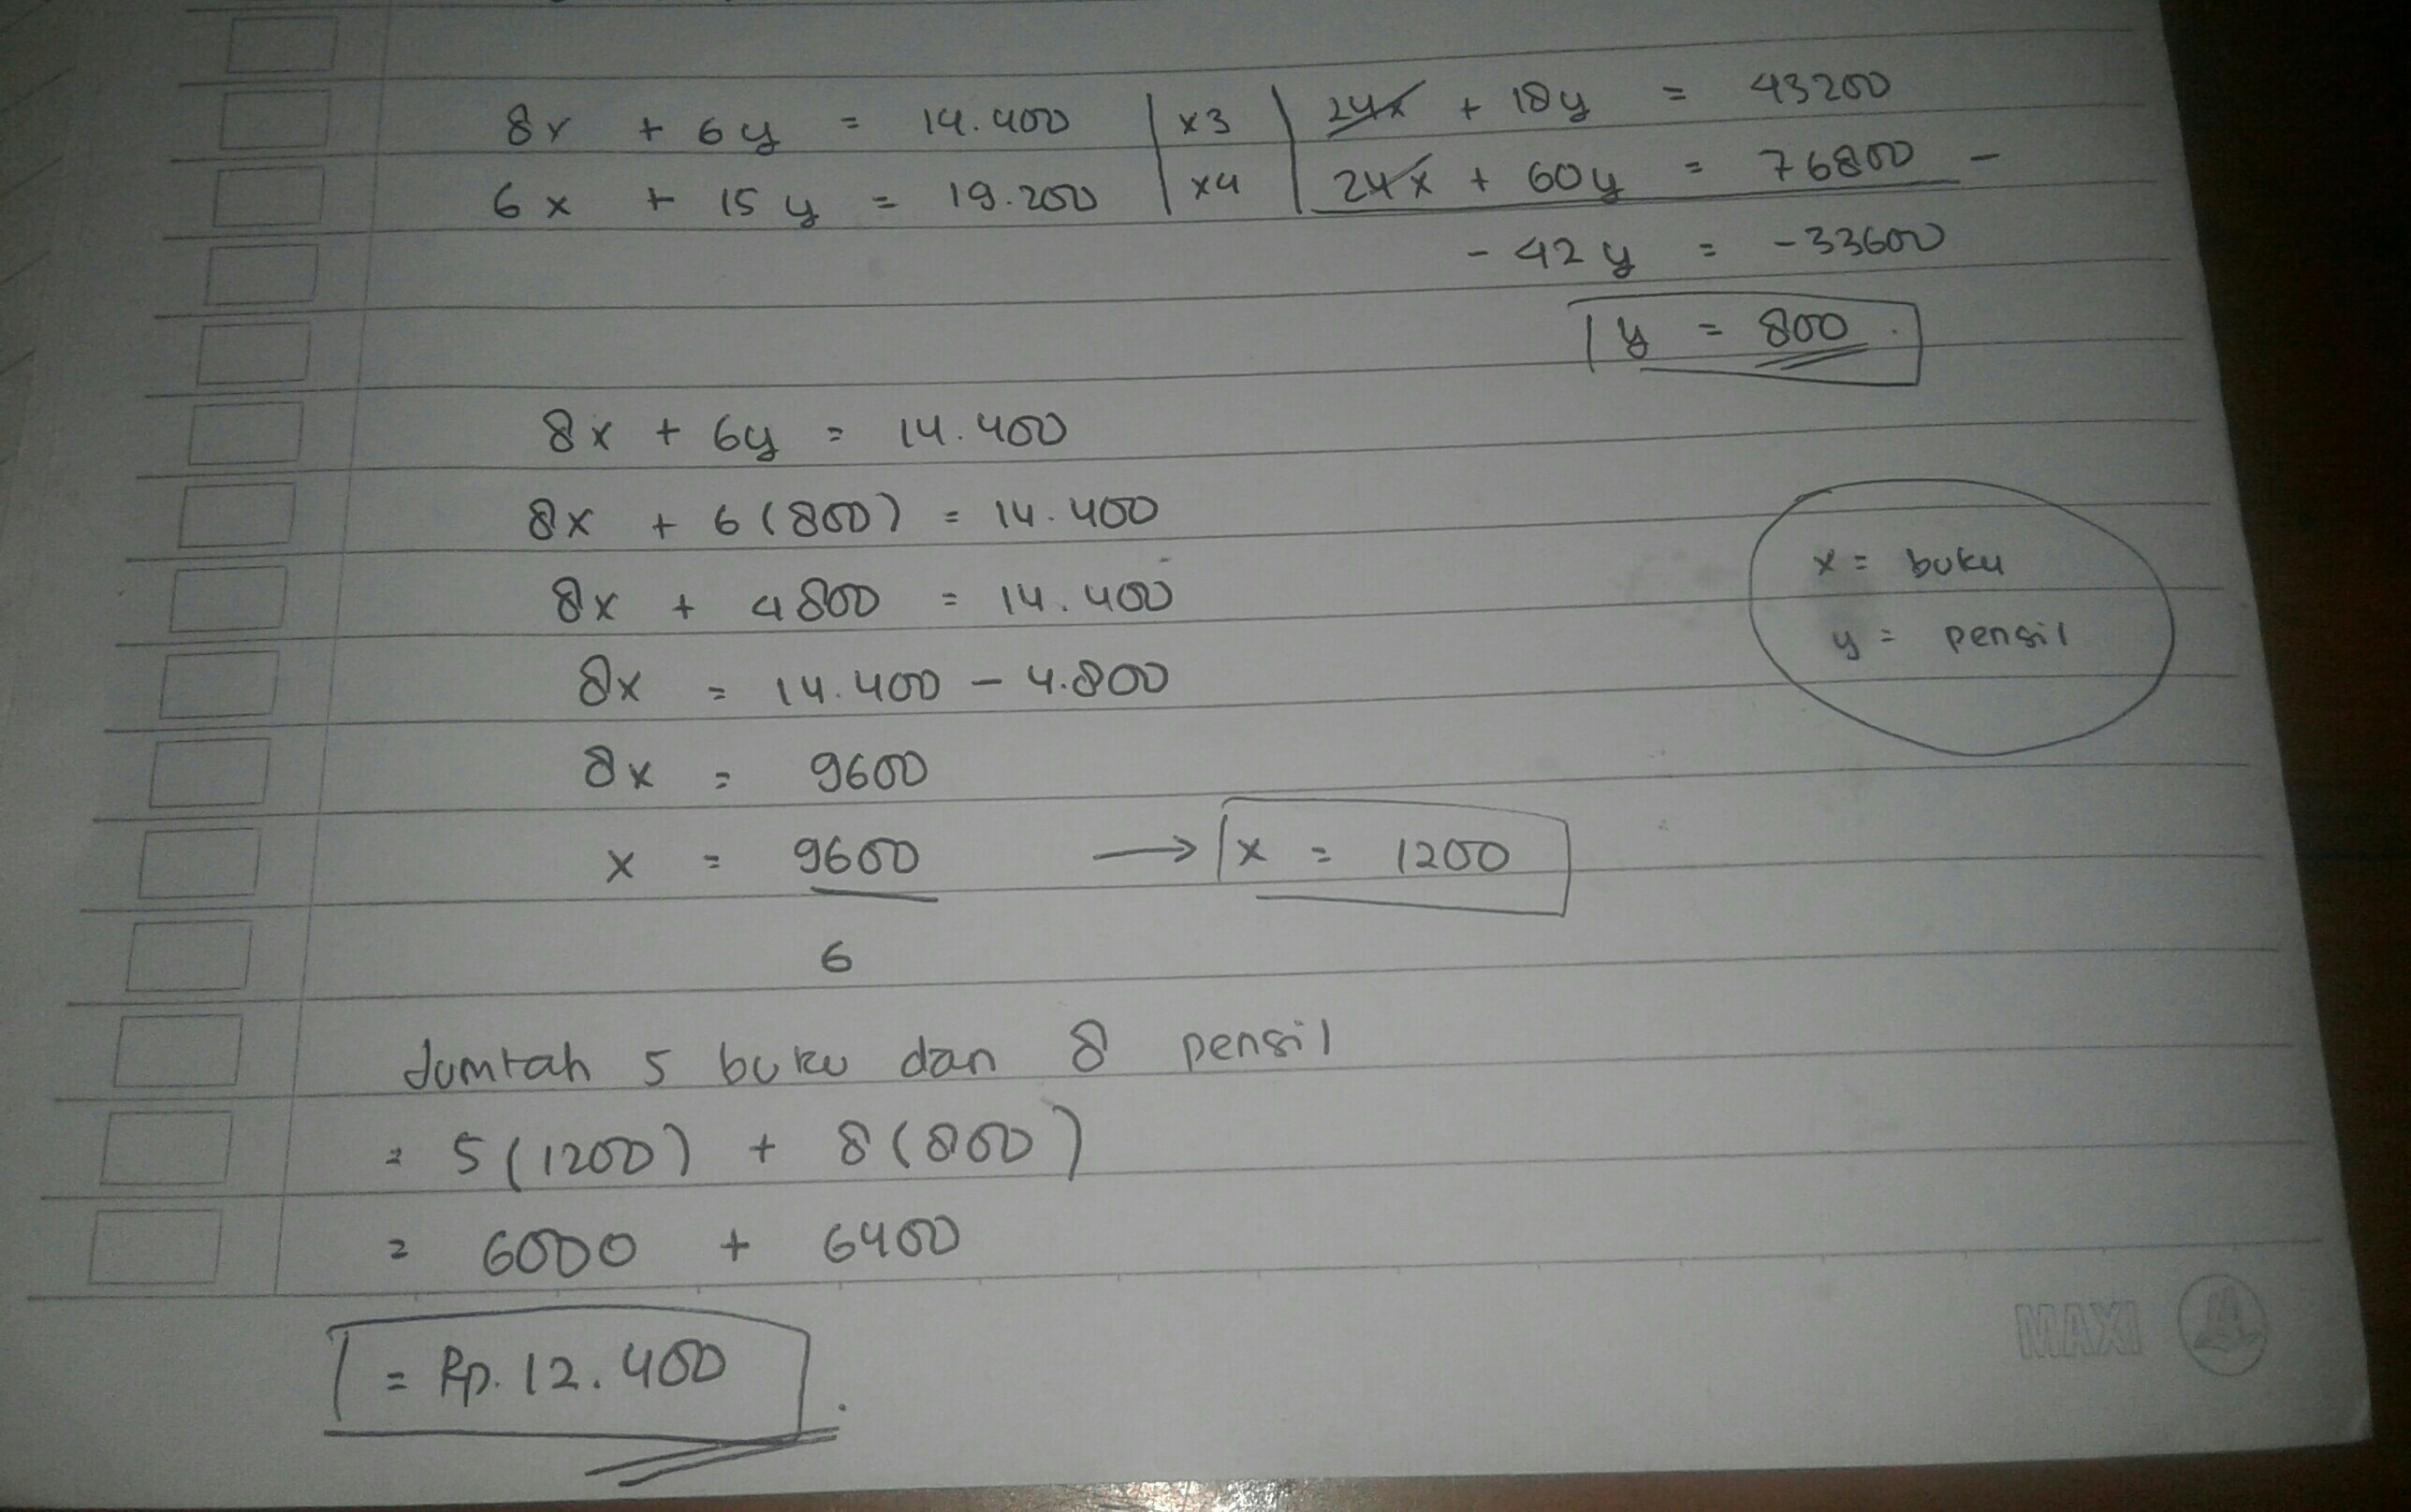 8x + 6y = 14.400 | x3 | 24x + 18y = 43200
6x + 15y = 19.200 | x4 | 24x + 60y = 76800 -
- 42y = -33600
y = 800.
8x + 6y = 14.400
8x + 6(800) = 14.400
8x + 4800 = 14.400
8x = 14.400 - 4.800
8x = 9600
x = 9600 → x = 1200
6
x = buku
y = pensil
Jumlah 5 buku dan 8 pensil
= 5(1200) + 8(800)
= 6000 + 6400
= Rp. 12.400.
MAXI